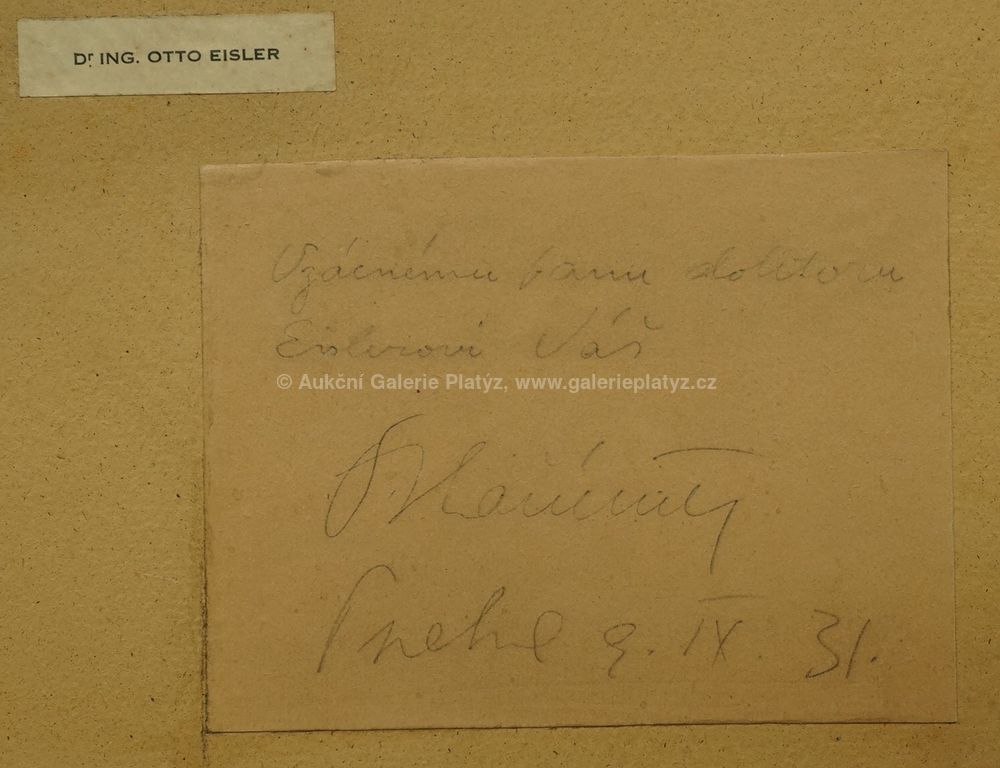 Dr. ING. OTTO EISLER
Vzácnému panu doktoru
Eislerovi Váš
© Aukční Galerie Platýz, www.galerieplatyz.cz
Praha 9. IX. 31.